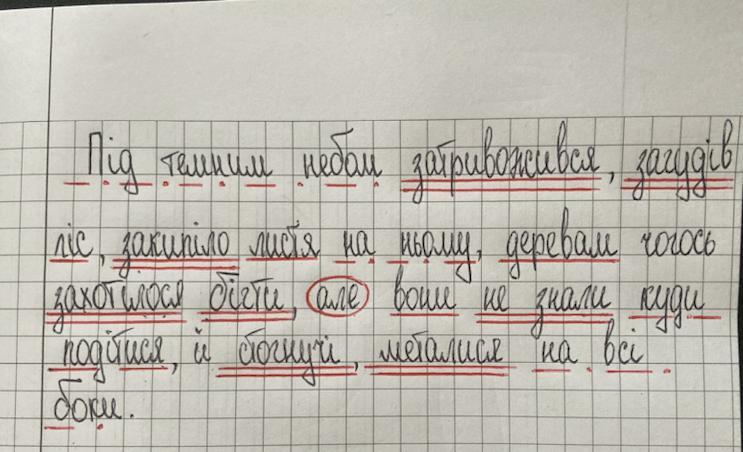 Під темним небом затривожився, загудів
ліс, закипіло листя на ньому, деревам чогось
захотілося бігти, але вони не знали куди
подітися, й стогнучи, металися на всі
боки.